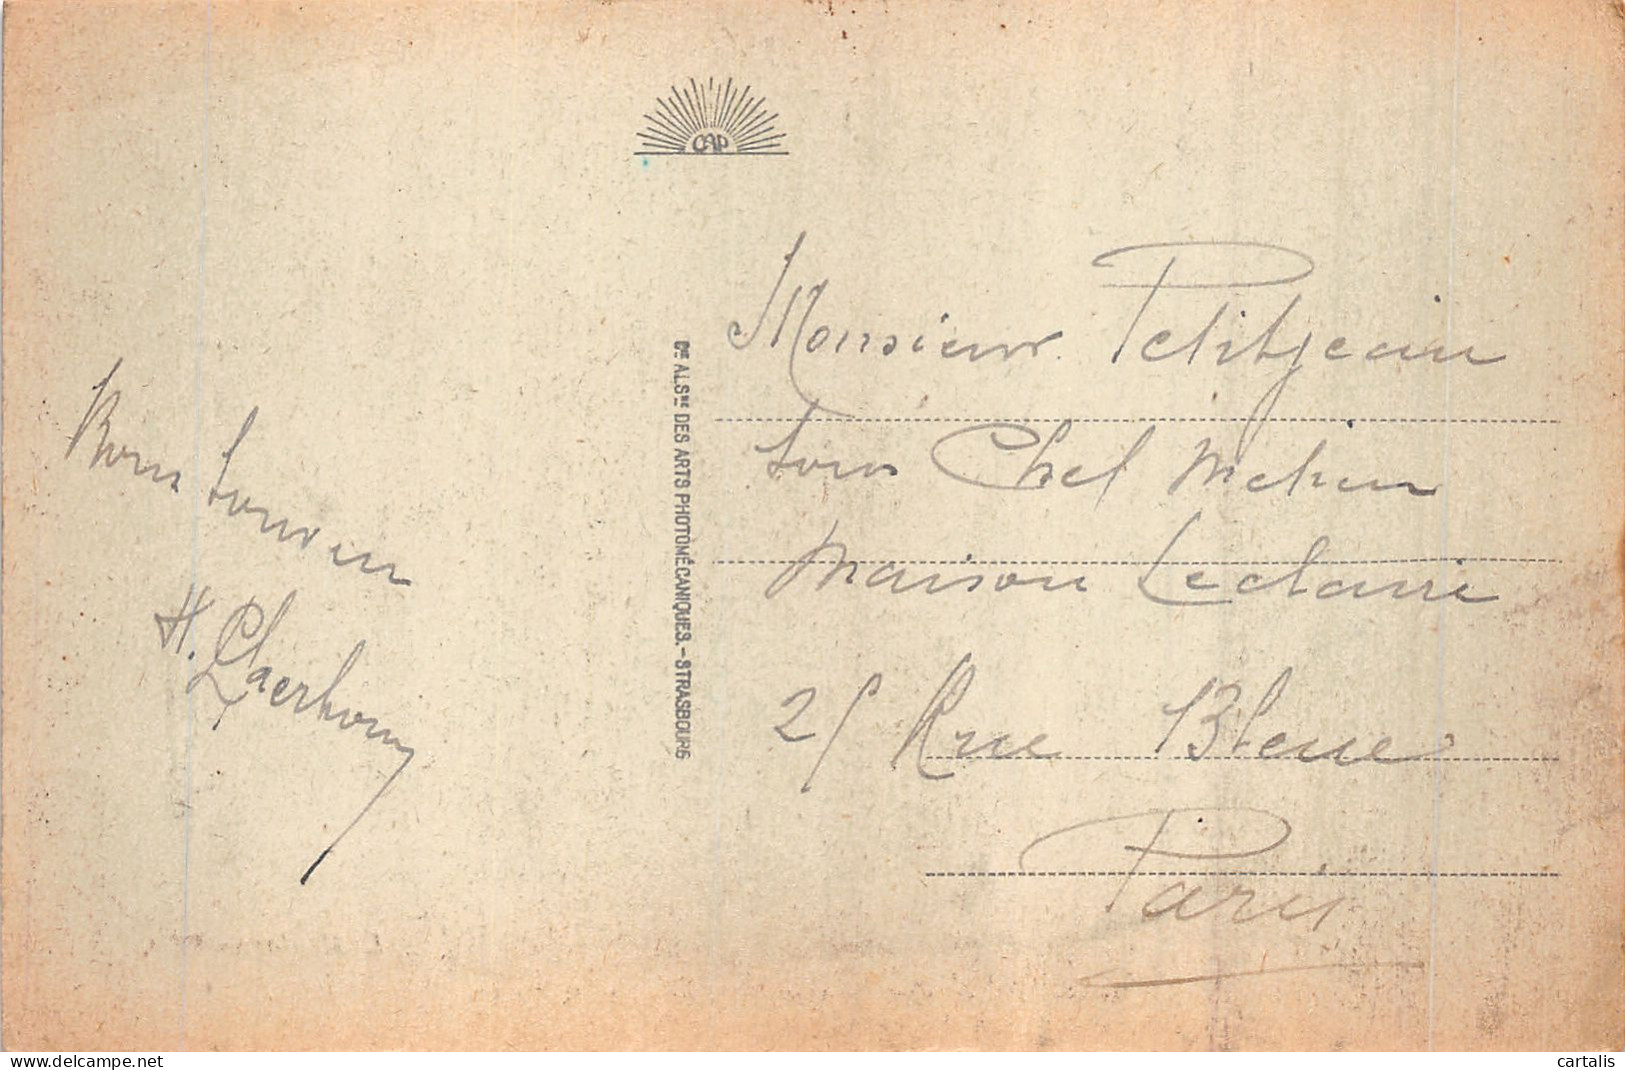 CAP
Cie ALSNE DES ARTS PHOTOMÉCANIQUES.-STRASBOURG
Bon Souvenir
H.
Monsieur Petitjean
Sous Chef
Maison Leclaire
25 Rue Bleue
Paris
delcampe.net
cartalis